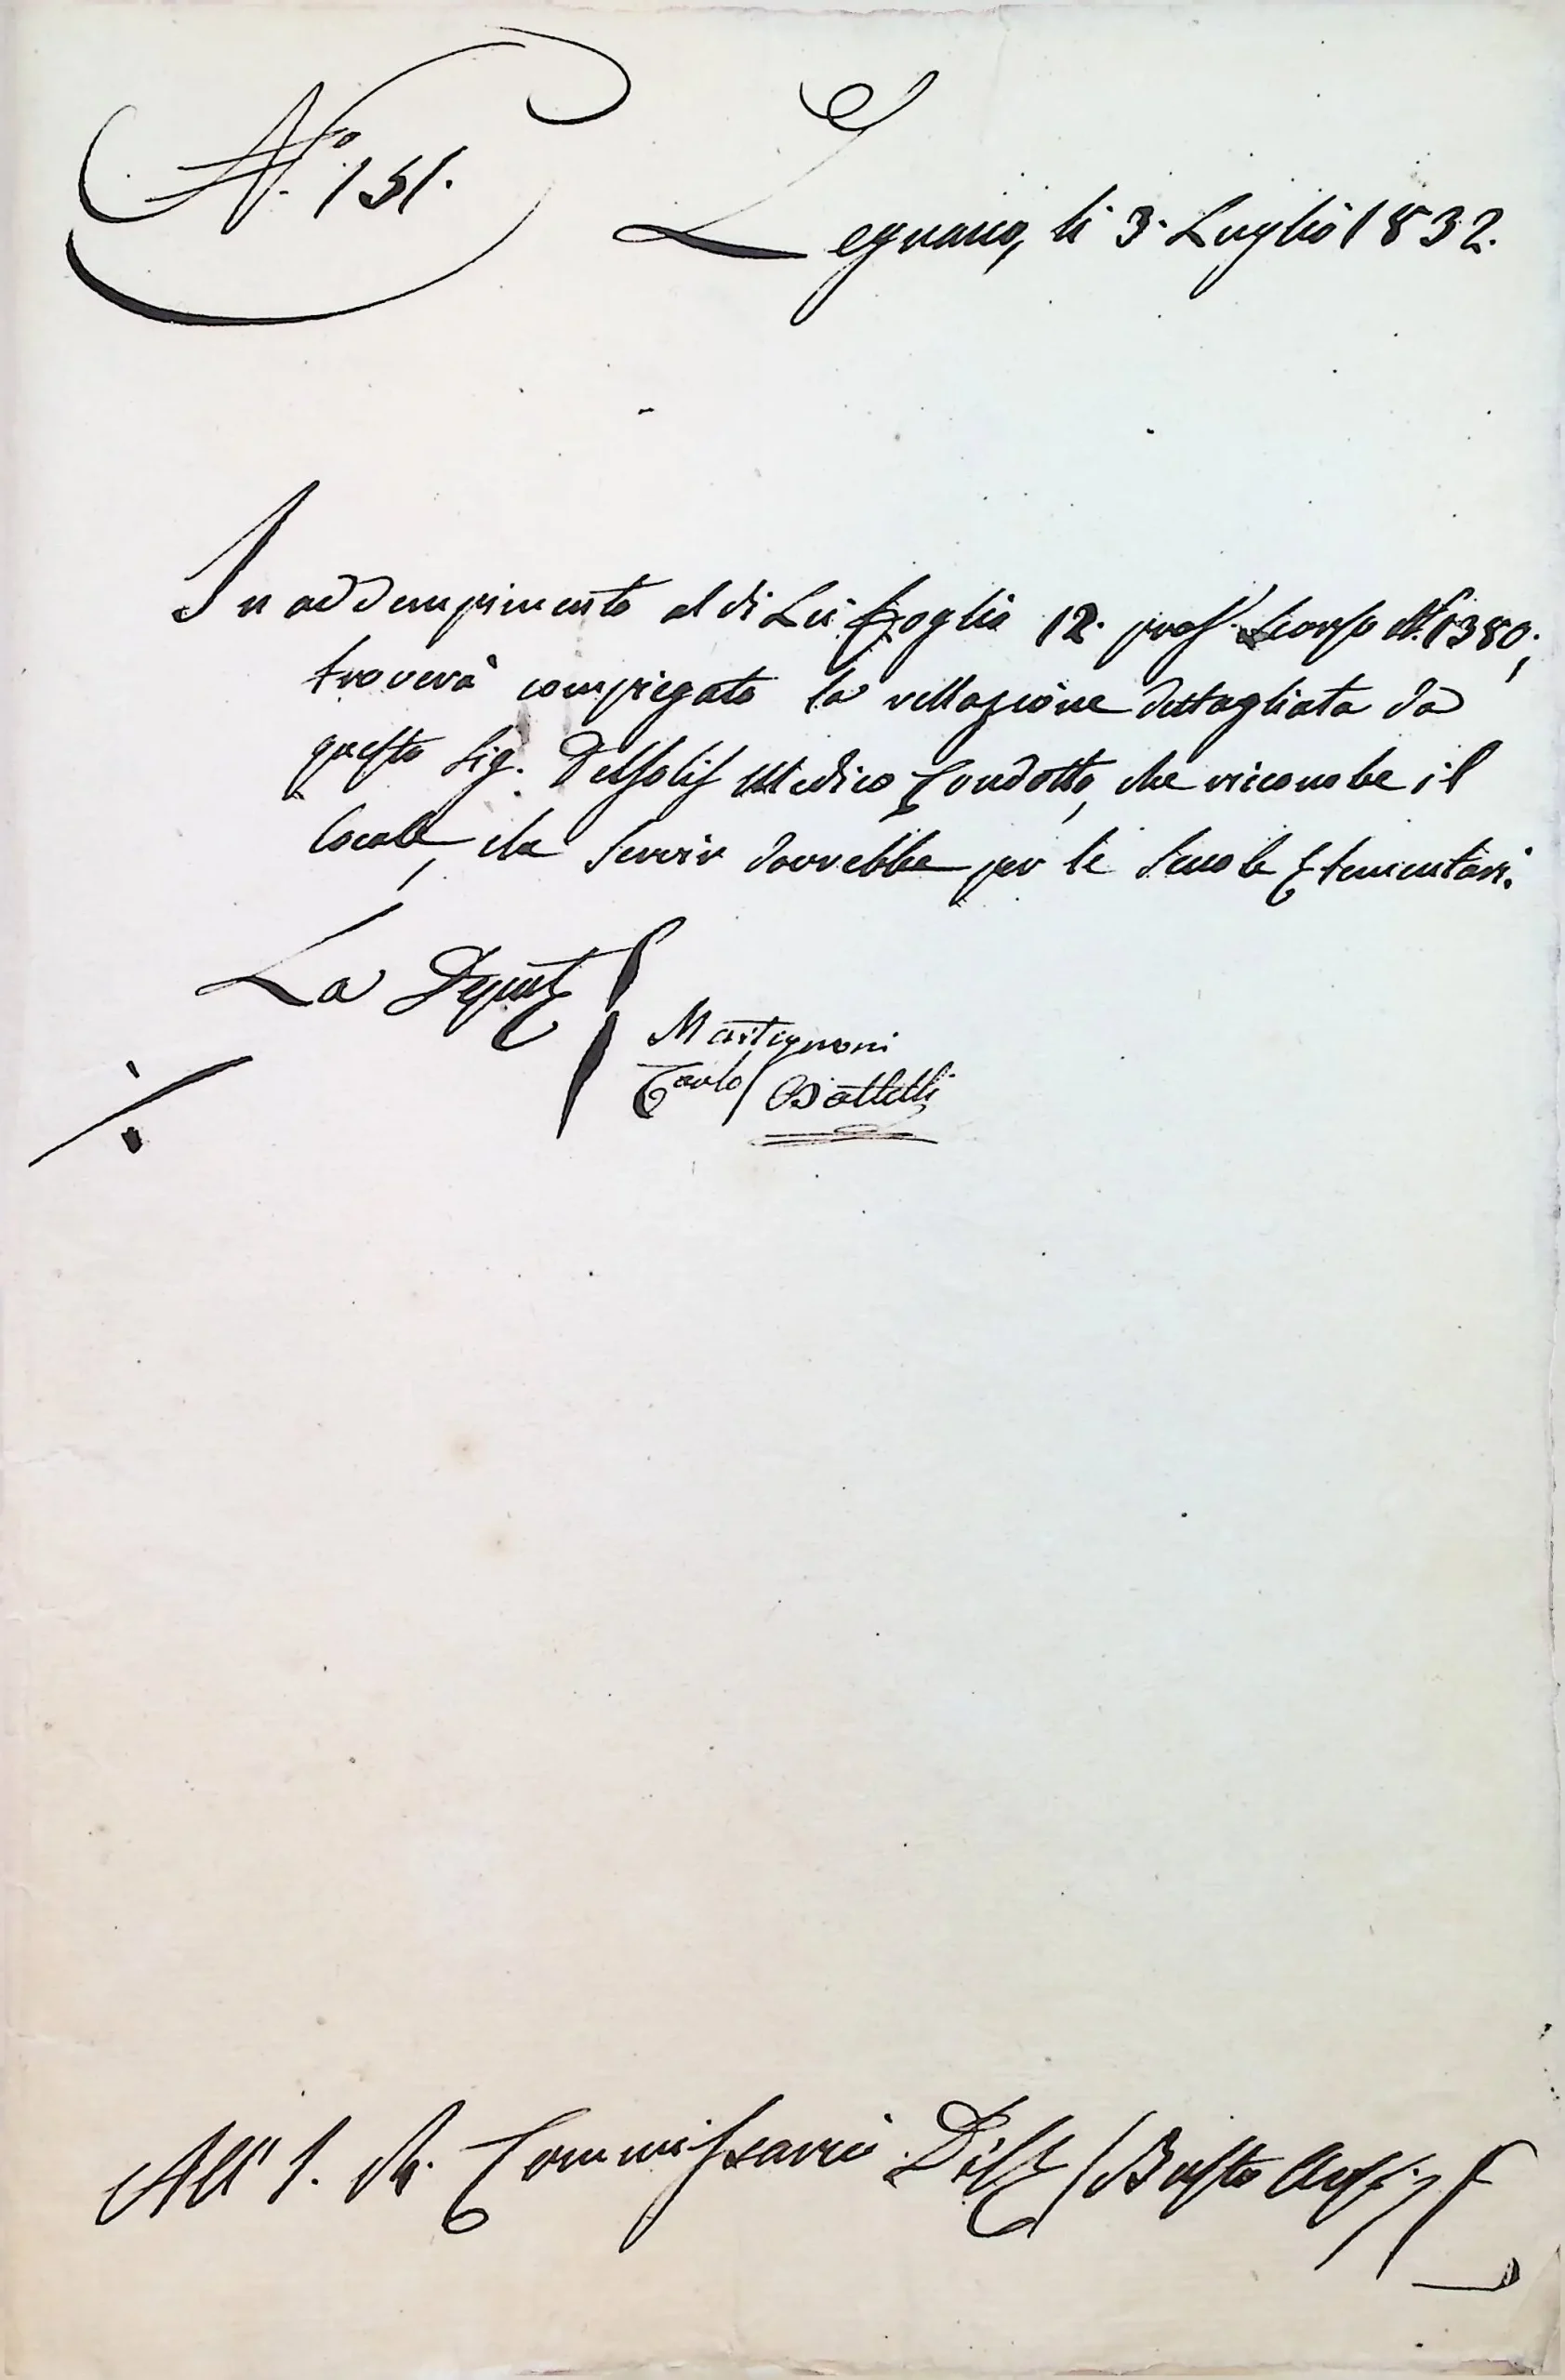 N.° 151.
Legnano, li 3. Luglio 1832.
In addempimento al di Lei Foglio 12. pros. scorso N. 1380;
troverà compiegato la rellazione dettagliata da
questo Sig. Medico Condotto, che riconobe il
locale, che servir dovrebbe per le Scuole Elementari.
La Deput.
Martignoni
Carlo Battelli
All' I. R. Commissario Dist. Busto Ars.